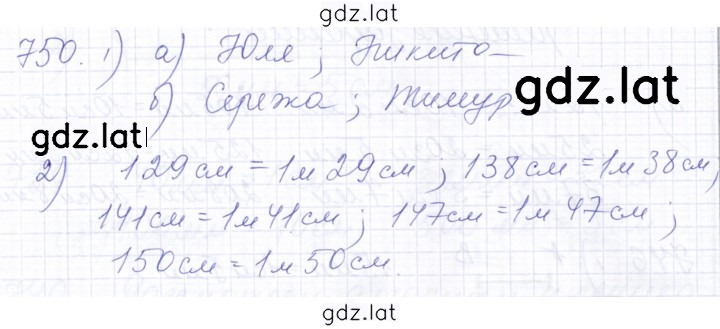 gdz.lat
750. 1) а) Юля; Никита
б) Сережа; Тимур
gdz.lat
gdz.lat
2) 129см = 1м 29см; 138см = 1м 38см,
141см = 1м 41см; 147см = 1м 47см;
150см = 1м 50см.
gdz.lat